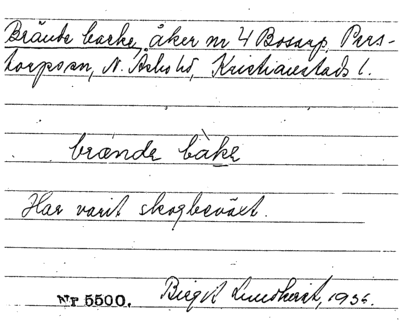 Brände backe, åker nr 4 Bosarp, Pers-
torps sn, N. Åsbo hd, Kristianstads l.
brænde bàkɛ
Har varit skogbeväxt.
Nr 5500. Birgit Lundkvist, 1936.